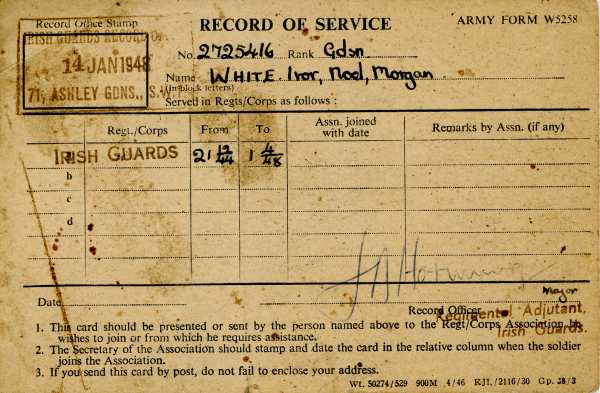 Record Office Stamp
RECORD OF SERVICE
ARMY FORM W5258
IRISH GUARDS RECORD OF
14 JAN 1948
71, ASHLEY GDNS., S.W.
No. 2725416 Rank Gdsn
Name WHITE. Ivor, Noel, Morgan
(in block letters)
Served in Regts/Corps as follows :
Regt./Corps From To Assn. joined with date Remarks by Assn. (if any)
a IRISH GUARDS 21 12/44 1 4/48
b
c
d
Major
Date
Record Officer
Regimental Adjutant,
Irish Guards.
1. This card should be presented or sent by the person named above to the Regt/Corps Association he
wishes to join or from which he requires assistance.
2. The Secretary of the Association should stamp and date the card in the relative column when the soldier
joins the Association.
3. If you send this card by post, do not fail to enclose your address.
Wt. 50274/529 900M 4/46 KJL/2116/30 Gp. 38/3